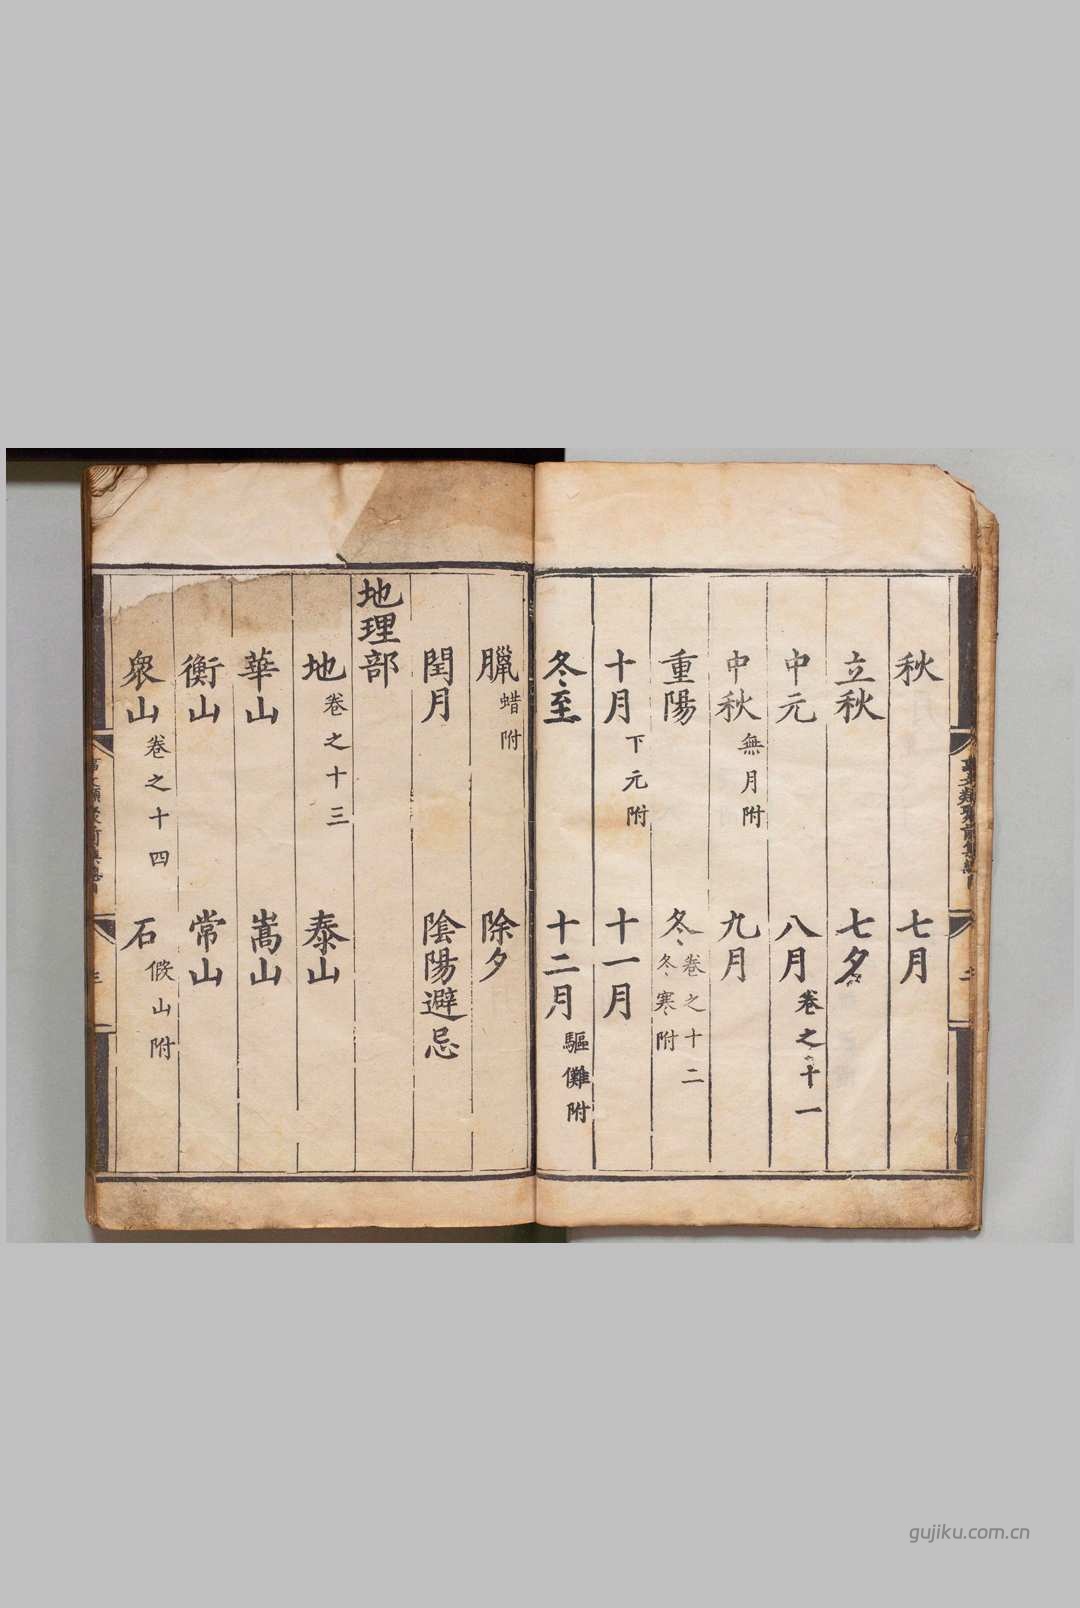 秋 七月
立秋 七夕
中元 八月 卷之十一
中秋 無月附 九月
重陽 冬 卷之十二 冬寒附
十月 下元附 十一月
冬至 十二月 驅儺附
臘 蜡附 除夕
閏月 陰陽避忌
地理部
地 卷之十三 泰山
華山 嵩山
衡山 常山
衆山 卷之十四 石 假山附
gujiku.com.cn